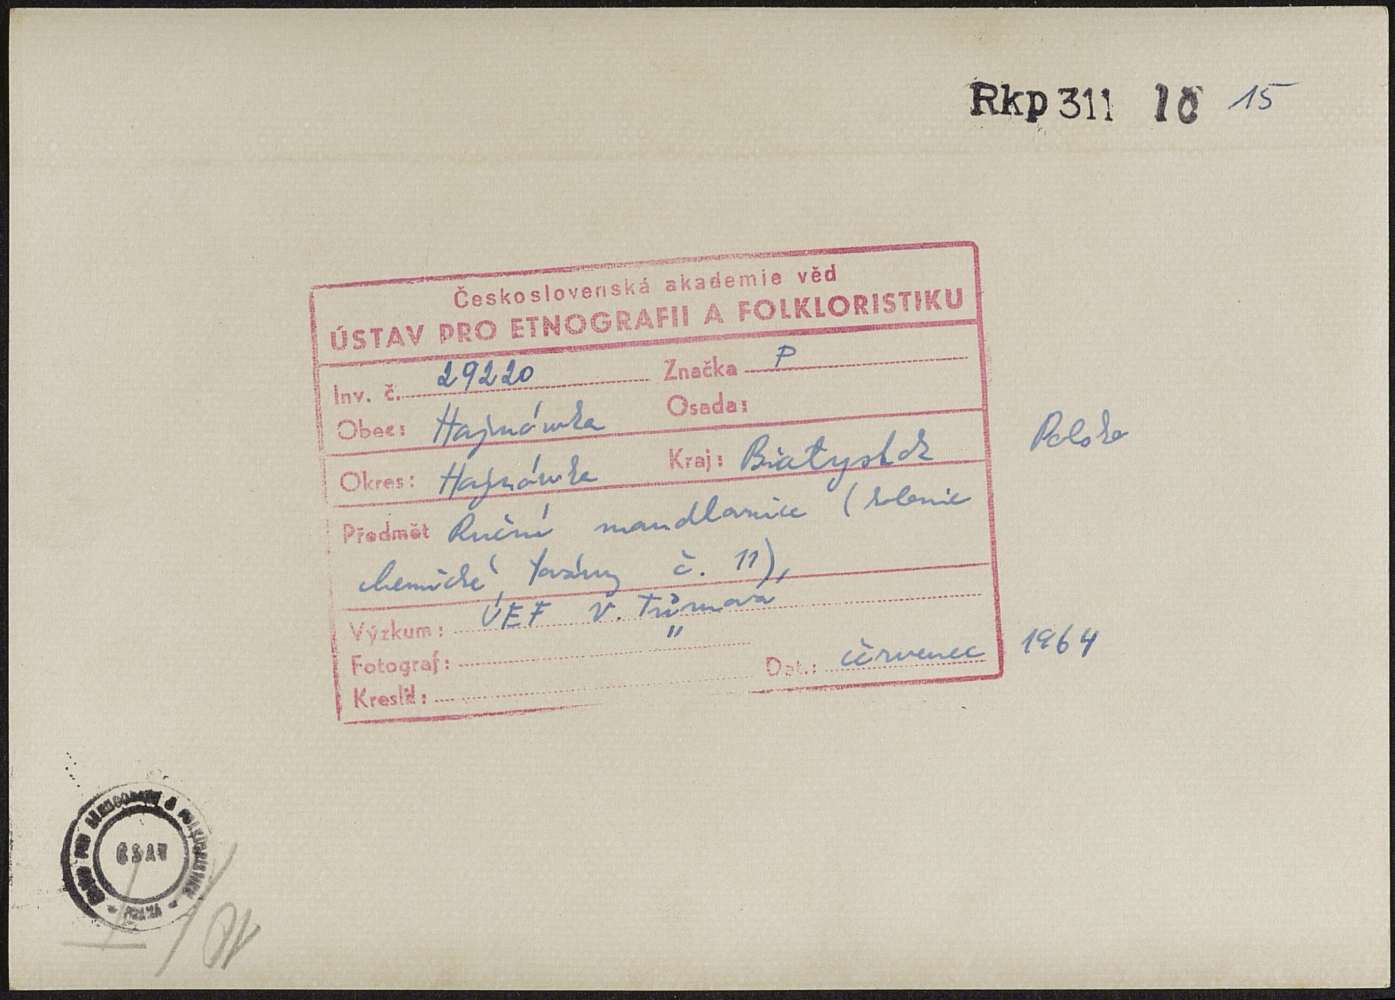 Rkp 311 10 15
Československá akademie věd
ÚSTAV PRO ETNOGRAFII A FOLKLORISTIKU
Inv. č. 29220 Značka P
Obec: Hajnówka Osada:
Okres: Hajnówka Kraj: Białystok Polsko
Předmět Ruční mandlovnice (kolonie
chemické továrny č. 11),
Výzkum: ÚEF V. Tůmová
Fotograf: "
Dat.: červenec 1964
Kreslil:
ČSAV